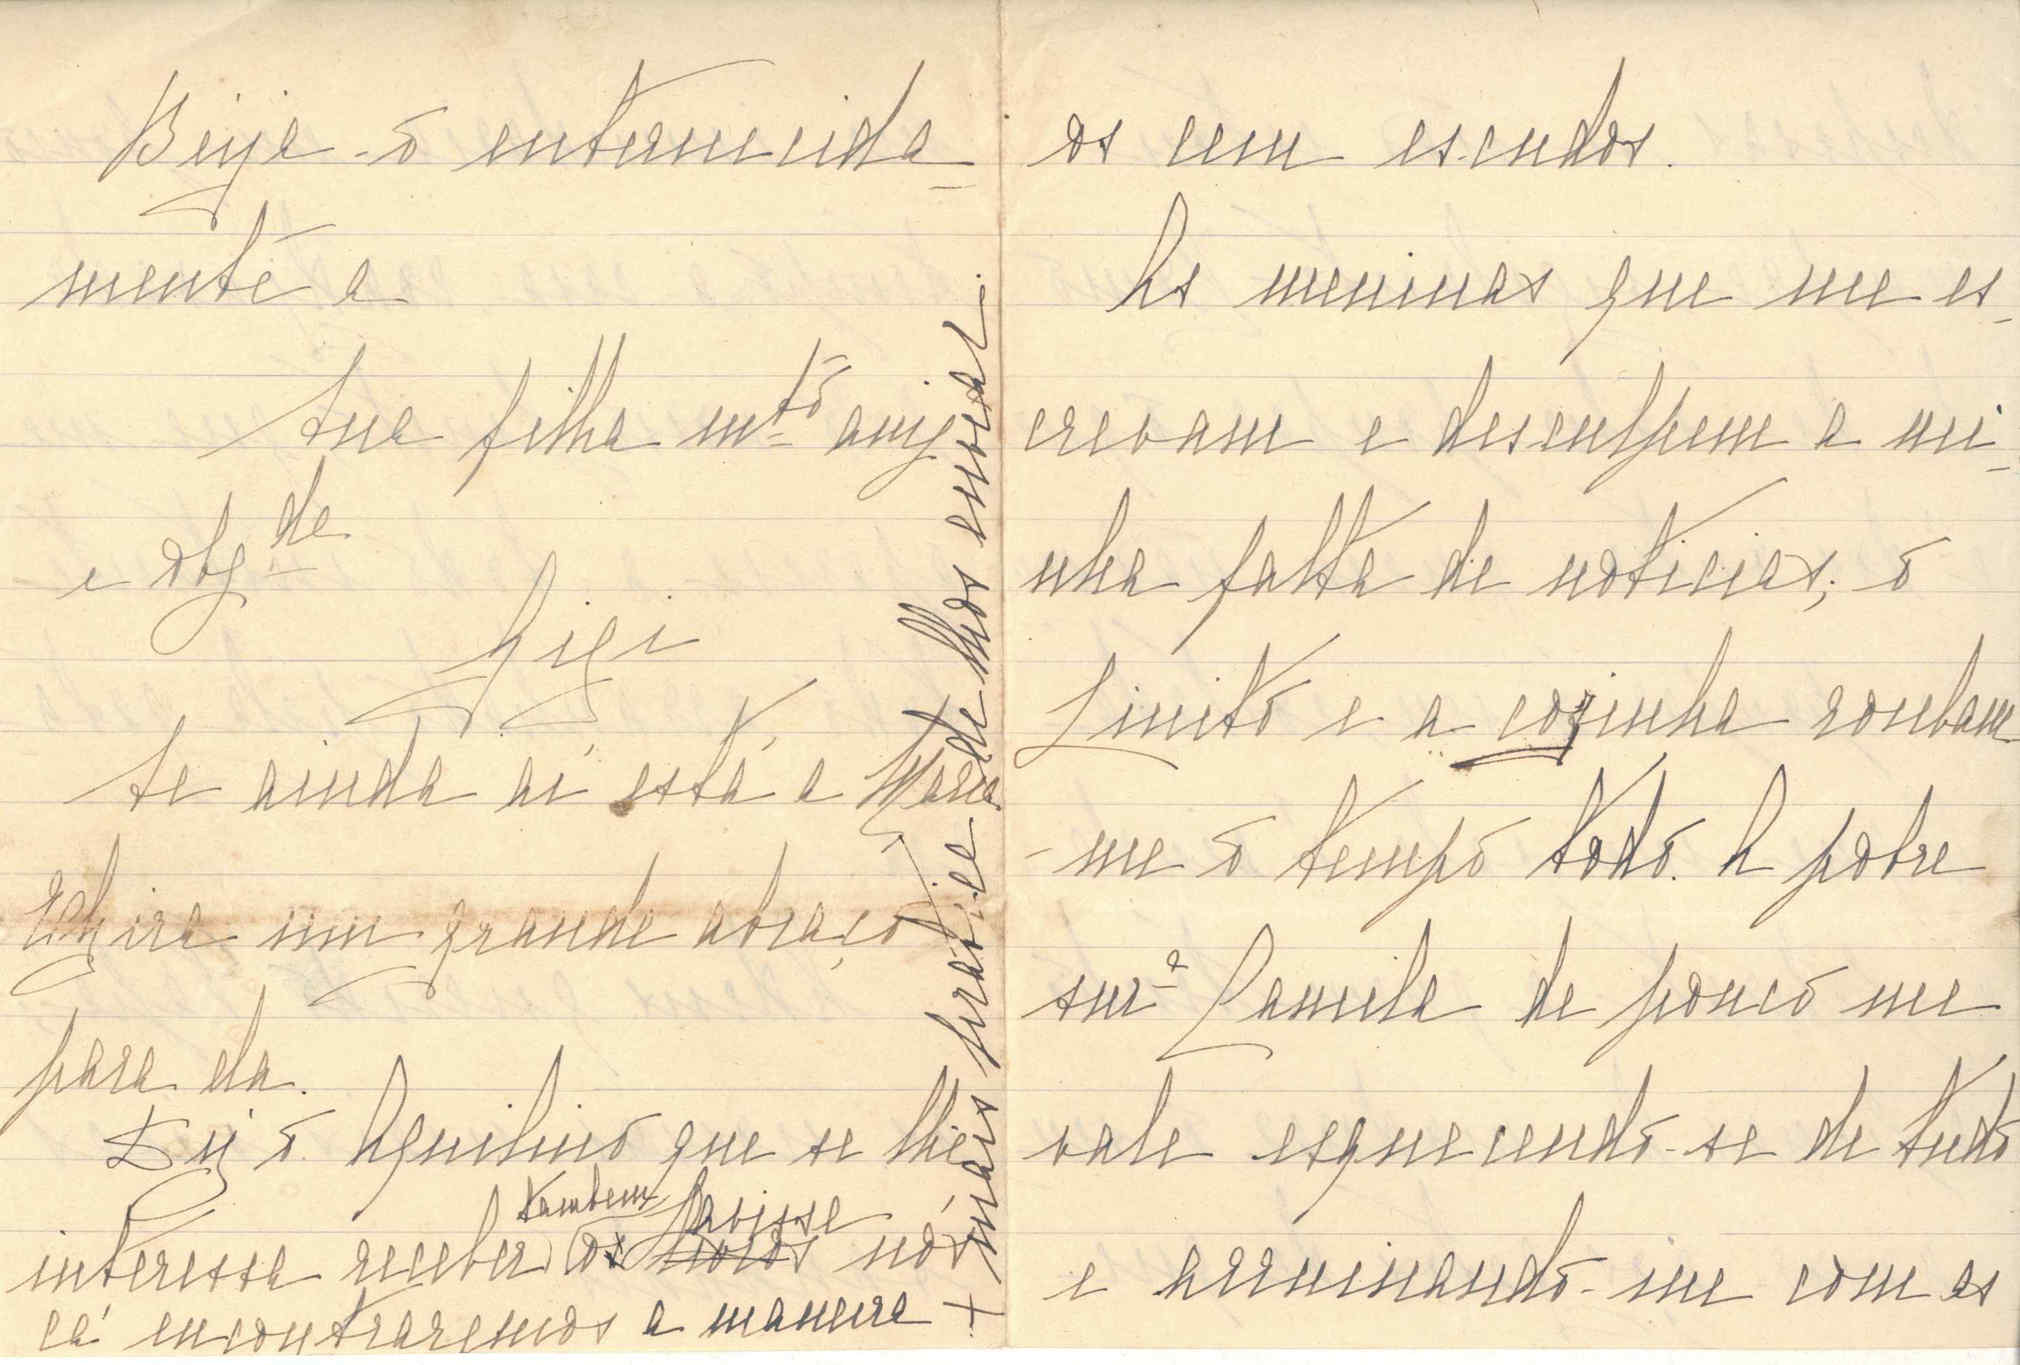 Beija-o enternecida-
mente a
Sua filha mtº amiga
e obgde
Gigi
Se ainda aí está a Maria
Elzira um grande abraço
para ela.
Diz ó Aquilino que se lhe
interessa receber também os livros Lavisse nós
cá encontraremos a maneira +
+ mais pratica de lhos enviar.
os cem escudos.
As meninas que me es-
crevam e desculpem a mi-
nha falta de noticias; o
Linito e a cozinha roubam
-me o tempo todo. A pobre
snrª Camila de pouco me
vale esquecendo-se de tudo
e arruinando-me com as